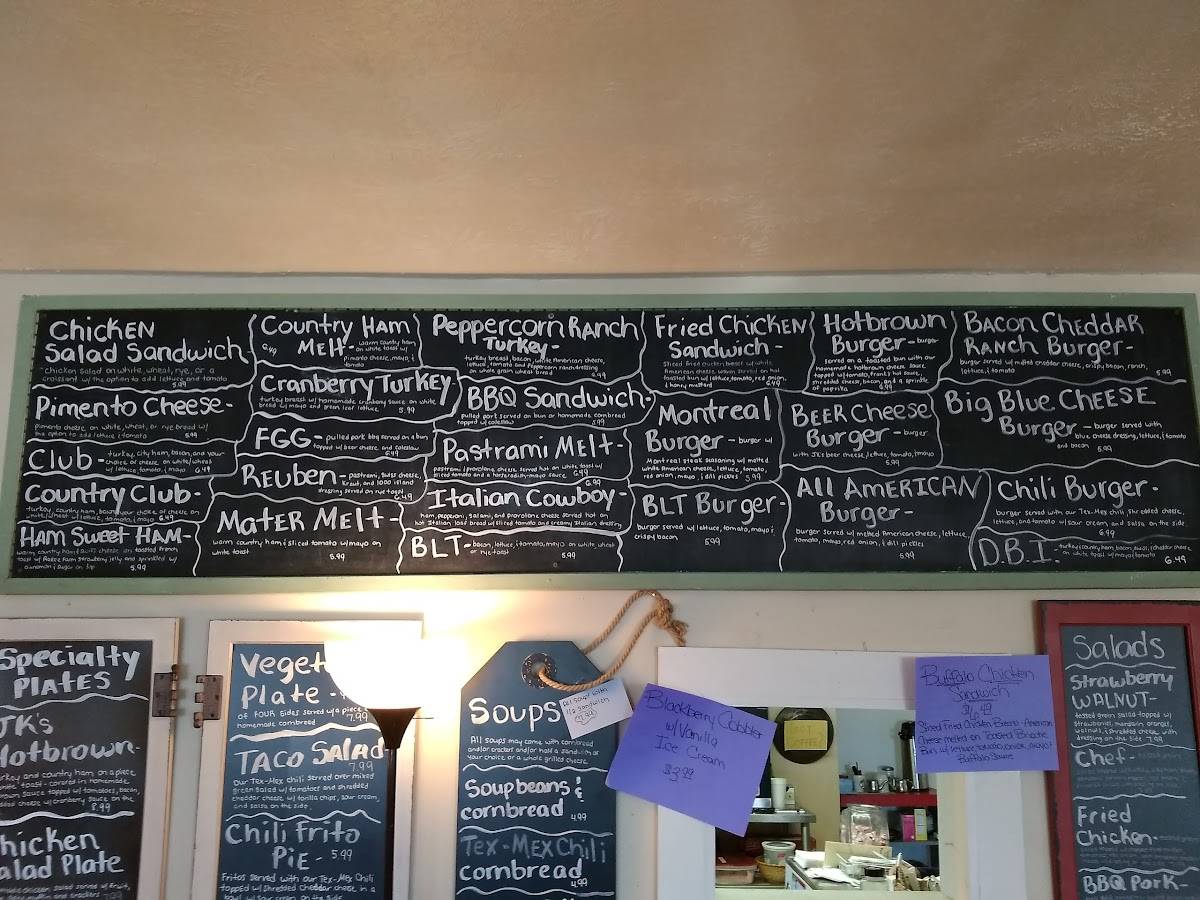 Chicken
Salad Sandwich
chicken salad on white, wheat, rye, or a
croissant w/ the option to add lettuce and tomato
5.99
Pimento Cheese-
pimento cheese, on white, wheat, or rye bread w/
the option to add lettuce & tomato 5.99
Club - turkey, city ham, bacon, and your
choice of cheese on white/wheat
w/ lettuce, tomato, & mayo 6.49
Country Club-
turkey, country ham, bacon, your choice of cheese on
white/wheat w/ lettuce, tomato, & mayo 6.49
Ham Sweet Ham-
warm country ham & swiss cheese on toasted french
cinnamon & sugar on top 5.99
Country Ham
Melt- warm country ham
on white toast w/
pimento cheese, mayo, &
tomato
6.49
Cranberry Turkey
turkey breast w/ homemade cranberry sauce on white
bread w/ mayo and green leaf lettuce. 5.99
FGG - pulled pork bbq served on a bun
topped w/ beer cheese and coleslaw
6.49
Reuben - pastrami, swiss cheese,
kraut, and 1000 island
dressing served on rye toast
6.49
Mater Melt-
warm country ham & sliced tomato w/ mayo on
white toast 5.99
Peppercorn Ranch
Turkey-
turkey breast, bacon, white American cheese,
lettuce, tomato and Peppercorn ranch dressing
on whole grain wheat bread 6.49
BBQ Sandwich-
pulled pork served on bun or homemade cornbread
topped w/ coleslaw 5.99
Pastrami Melt-
pastrami & provolone cheese served hot on white toast w/
sliced tomato and a horseradish-mayo sauce 6.49
Italian Cowboy-
ham, pepperoni, salami, and provolone cheese served hot on
hot Italian loaf bread w/ sliced tomato and creamy Italian dressing
BLT - bacon, lettuce, & tomato, mayo on white, wheat
or rye toast 5.99
Fried Chicken
Sandwich -
Sliced fried chicken breast w/ white
American cheese, warm served on hot
toasted bun w/ lettuce, tomato, red onion,
& honey mustard 6.49
Montreal
Burger - burger w/
Montreal steak seasoning w/ melted
white American cheese, lettuce, tomato,
red onion, mayo, & dill pickles 5.99
BLT Burger-
burger served w/ lettuce, tomato, mayo &
crispy bacon 5.99
Hotbrown
Burger- burger
served on a toasted bun with our
homemade hotbrown cheese sauce
shredded cheese, bacon, and a sprinkle
of paprika 6.49
Beer Cheese
Burger - burger
with JK's beer cheese, lettuce, tomato
5.99
All American
Burger-
burger served w/ melted American cheese, lettuce,
tomato, mayo, red onion, & dill pickles
5.99
Bacon Cheddar
Ranch Burger-
burger served w/ melted cheddar cheese, crispy bacon, ranch,
lettuce, & tomato 5.99
Big Blue Cheese
Burger - burger served with
blue cheese dressing, lettuce, & tomato
and bacon 5.99
Chili Burger-
burger served with our Tex-Mex chili shredded cheese,
lettuce, and tomato w/ sour cream and salsa on the side.
6.99
D.B.I. - turkey, country ham, bacon, swiss, & cheddar cheese,
on white toast w/ mayo & tomato
6.49
Specialty
Plates
JK's
Hotbrown-
turkey and country ham on a piece
8.99
Chicken
Salad Plate
Veget
Plate -
of FOUR sides served w/ a piece
homemade cornbread 7.99
Taco Salad
7.99
Our Tex-Mex chili served over mixed
green salad w/ tomatoes and shredded
cheddar cheese w/ tortilla chips, sour cream,
and salsa on the side.
Chili Frito
Pie - 5.99
Fritos served with our Tex-Mex Chili
topped w/ shredded cheddar cheese in a
bowl w/ sour cream on the side
Soups
All soups may come with cornbread
and/or crackers and/or half a sandwich of
your choice, or a whole grilled cheese.
Soup beans &
cornbread 4.99
Tex-Mex Chili
cornbread
4.99
All soups with
1/2 sandwich
7.99
Blackberry Cobbler
w/ Vanilla
Ice Cream
$3.99
Buffalo Chicken
Sandwich
$6.49
Sliced Fried Chicken Breast - American
Cheese melted on Toasted Brioche
Bun w/ lettuce, tomato, onion, mayo &
Buffalo Sauce
Salads
Strawberry
Walnut-
tossed green salad topped w/
strawberries, mandarin orange,
walnuts, & shredded cheese with
dressing on the side 7.99
Chef-
Fried
Chicken-
BBQ Pork-